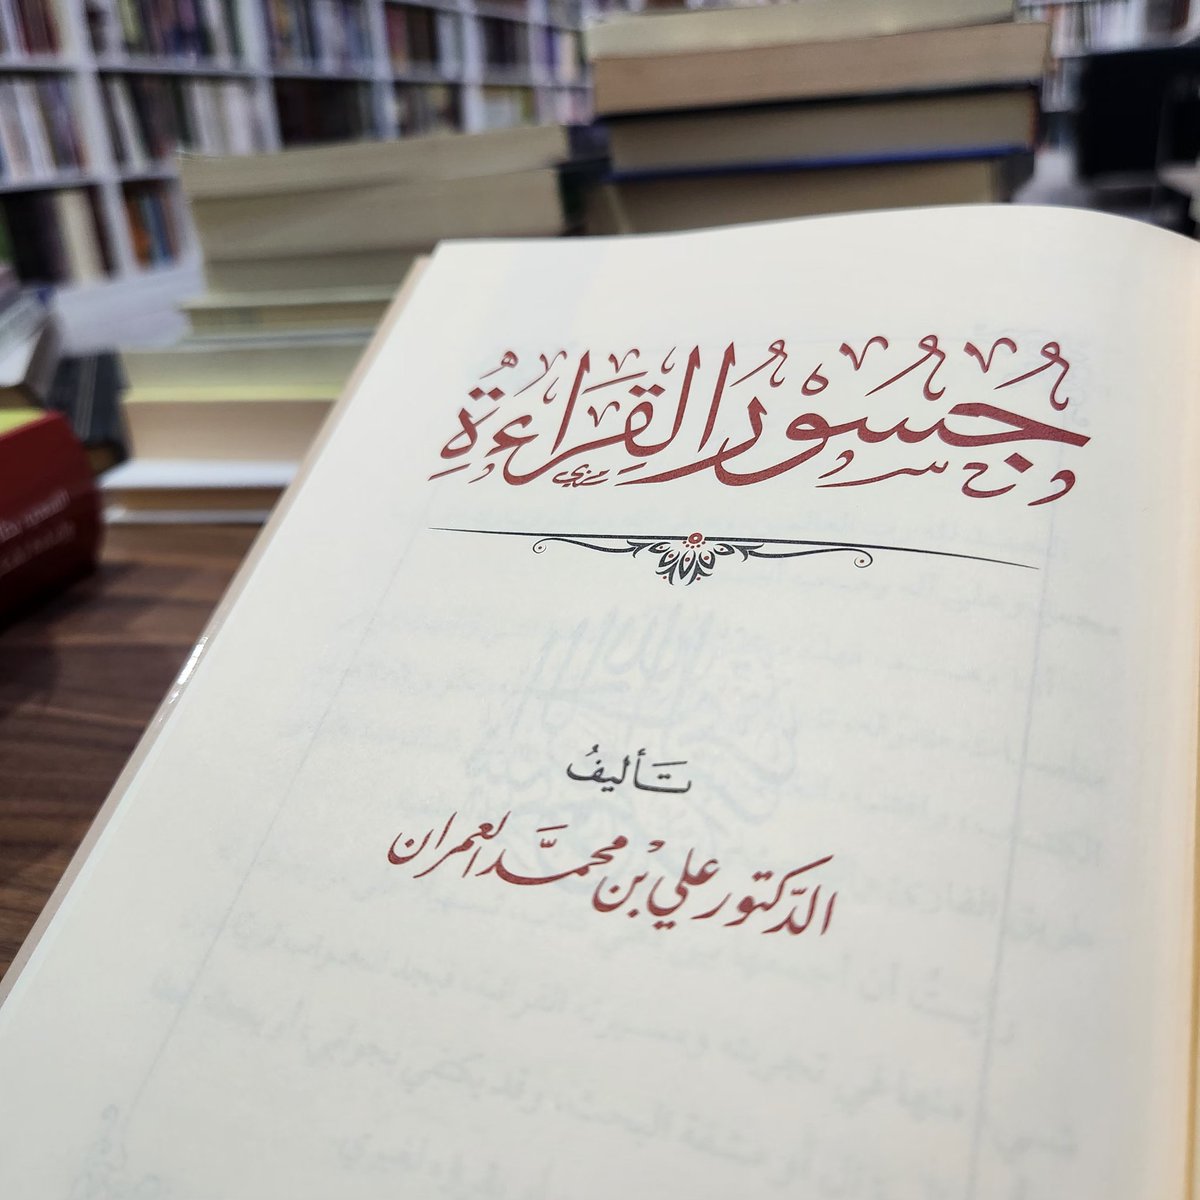 جُسُورُ القِرَاءَةِ
تَأليفُ
الدّكتور علي بْن محمَّد العمران